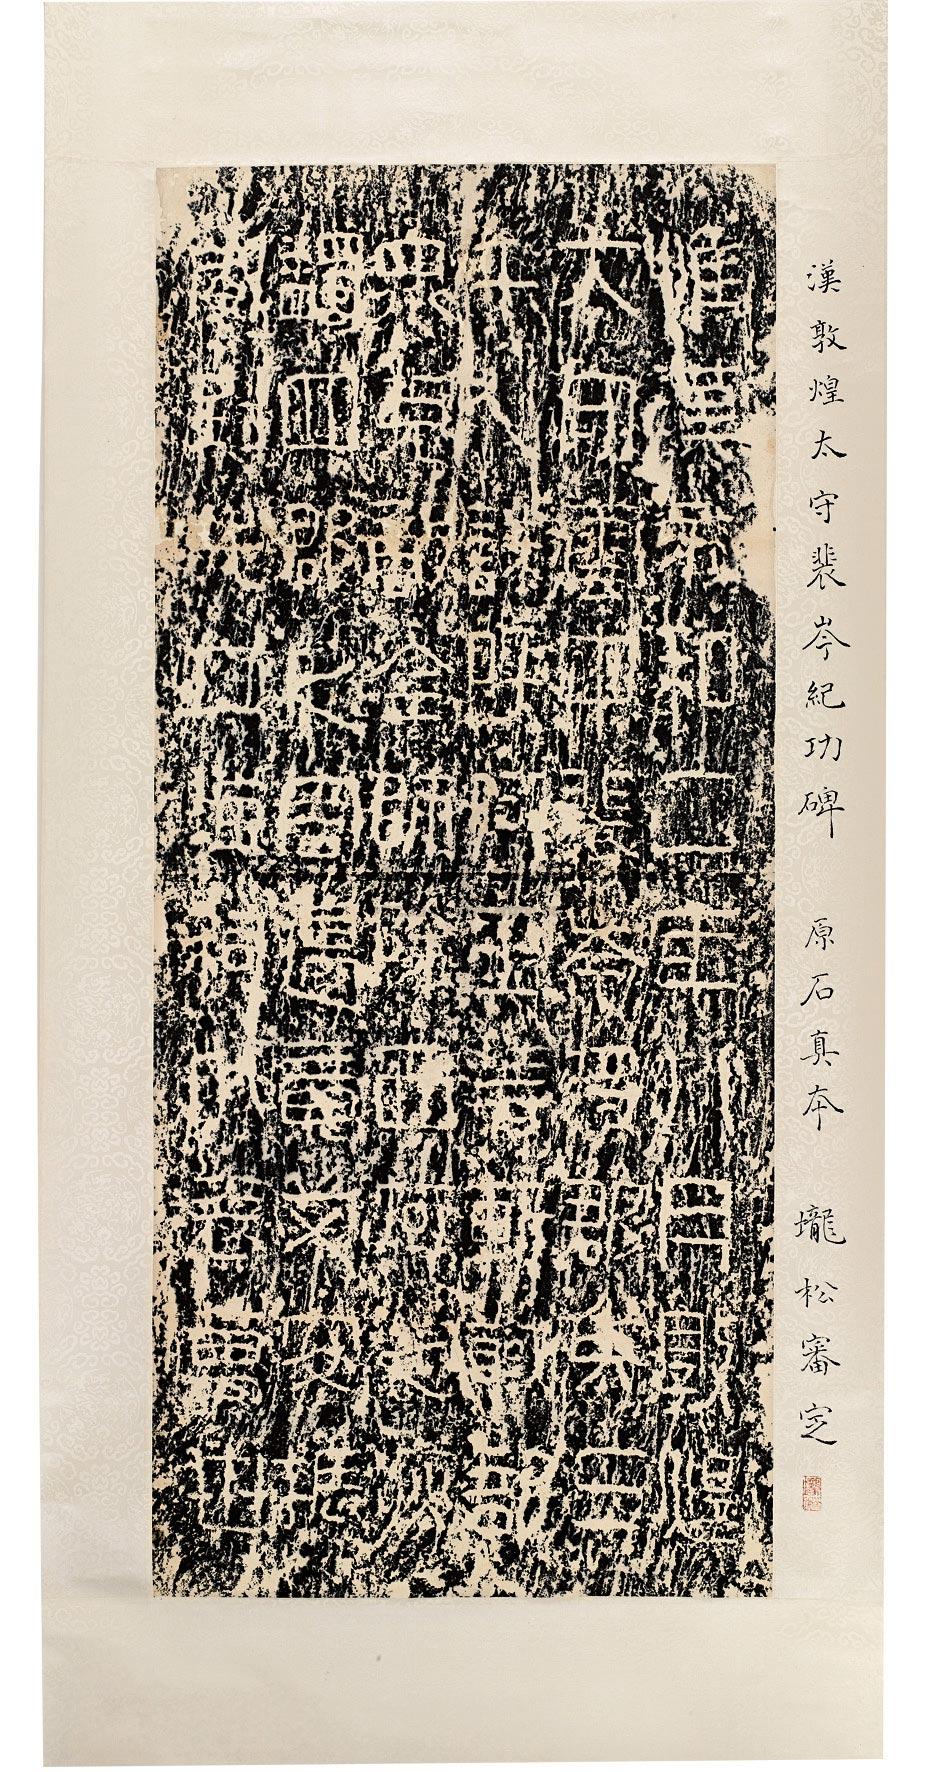 漢敦煌太守裴岑紀功碑 原石真本 壠松審定
惟漢永和二年八月敦煌
太守雲中裴岑將郡兵三
千人誅呼衍王等斬馘部
衆克敵全師除西域之疢
蠲四郡之害邊竟艾安振
威到此立海祠以表萬世